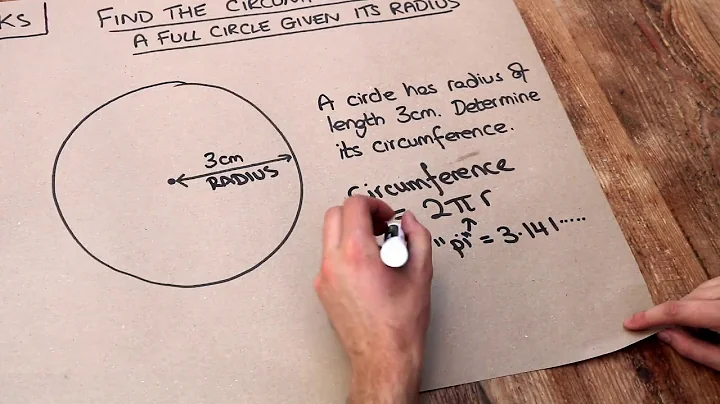 KS
FIND THE
A FULL CIRCLE GIVEN ITS RADIUS
A circle has radius of
length 3cm. Determine
its circumference.
3cm
RADIUS
Circumference
= 2πr
"pi" = 3.141.....